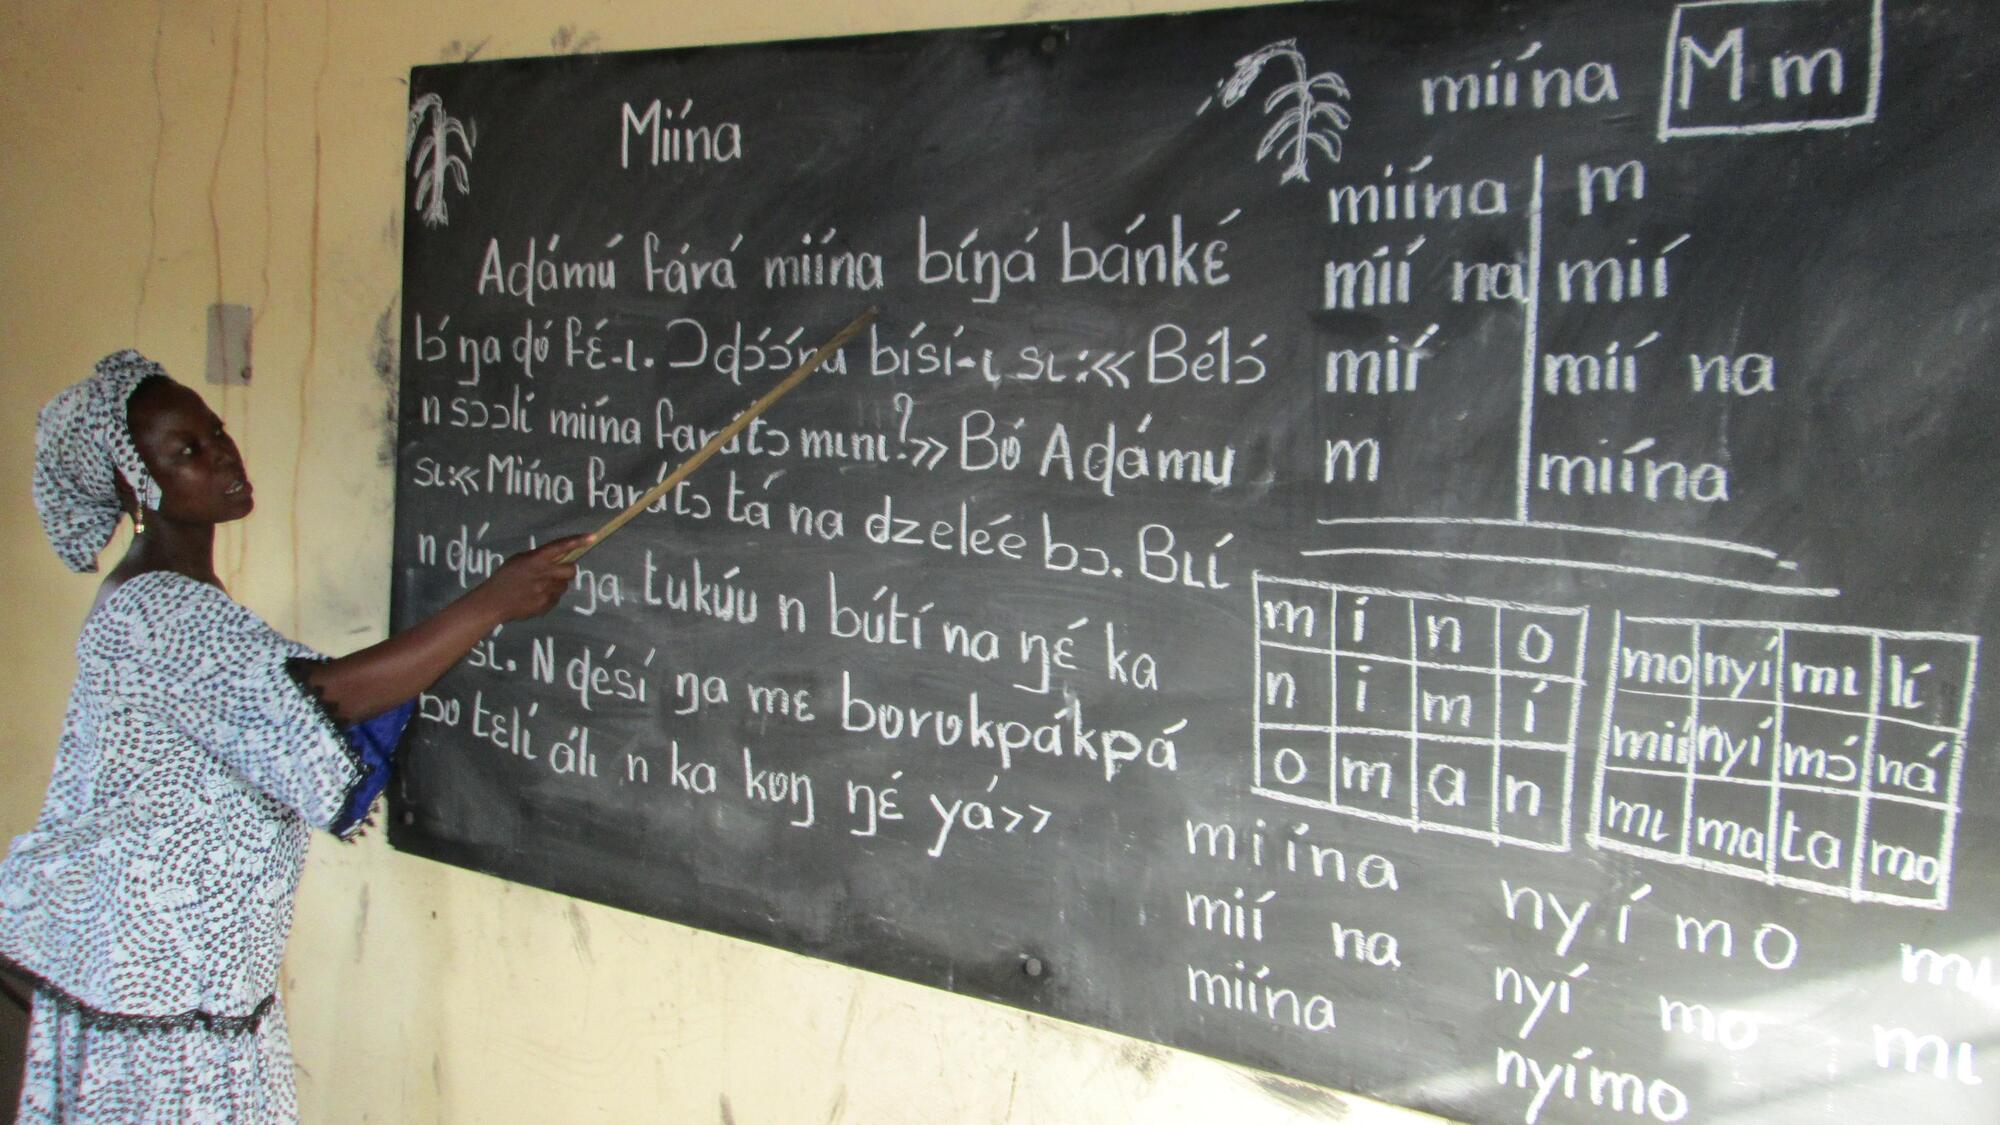 Miína
Aɖámú fárá miína bíŋá bánkɛ́
lɔ́ ŋa ɖʊ́ fɛ́-ɩ. Ɔɖɔ́ɔ́na bísí-ɩ sɩ:«Bélɔ́
n sɔɔlí miína farátɔ mɩnɩ?» Bʊ́ Aɖámu
sɩ:«Miína farátɔ tá na dzeléé bɔ. Bɩɩ́
n ɖún ŋa tukúu n bútí na ŋɛ́ ka
sí. N ɖésí ŋa mɛ bʊrʊkpákpá
bʊ tɛlɩ́ álɩ n ka kʊŋ ŋɛ́ yá»
miína M m
miína m
mií na mií
mií mií na
m miína
m i n o
n i m í
o m a n
mo nyí mɩ lɩ́
mií nyí mɔ́ ná
mɩ ma ta mo
m i í n a
mií na
miína
ny í m o
nyí mo
nyímo
mɩ
mɩ